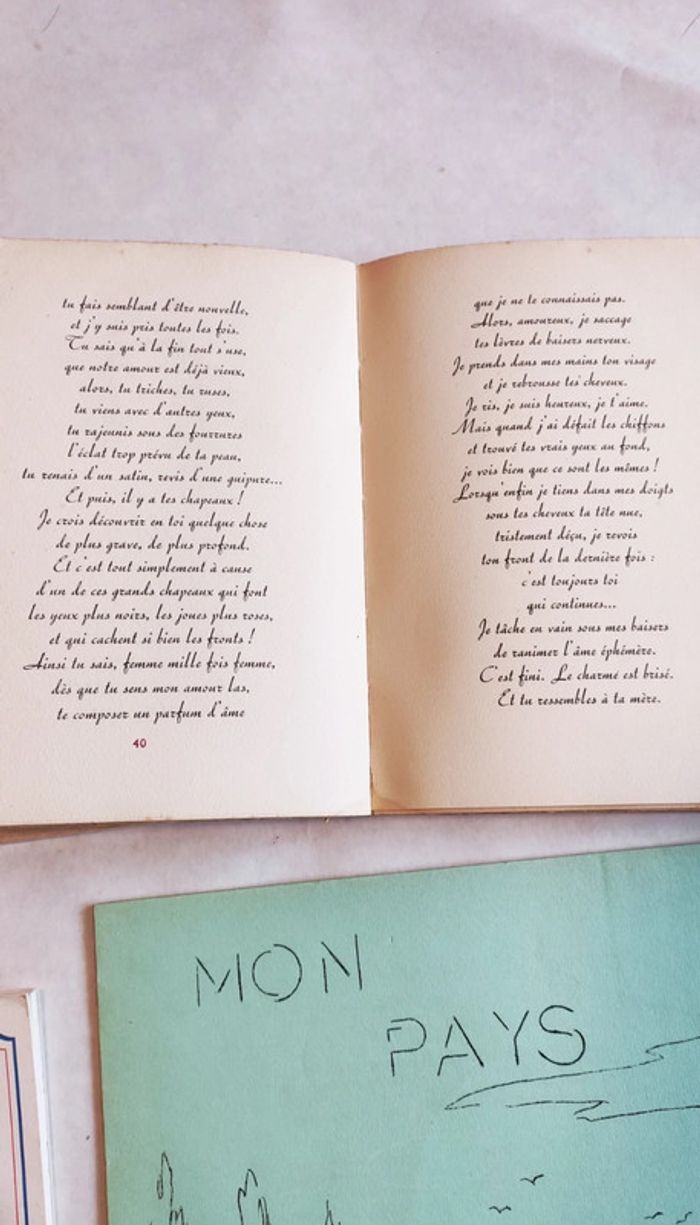 tu fais semblant d'être nouvelle,
et j'y suis pris toutes les fois.
Tu sais qu'à la fin tout s'use,
que notre amour est déjà vieux,
alors, tu triches, tu ruses,
tu viens avec d'autres yeux,
tu rajeunis sous des fourrures
l'éclat trop prévu de ta peau,
tu renais d'un satin, revis d'une guipure...
Et puis, il y a tes chapeaux !
Je crois découvrir en toi quelque chose
de plus grave, de plus profond.
Et c'est tout simplement à cause
d'un de ces grands chapeaux qui font
les yeux plus noirs, les joues plus roses,
et qui cachent si bien les fronts !
Ainsi tu sais, femme mille fois femme,
dès que tu sens mon amour las,
te composer un parfum d'âme
40
que je ne te connaissais pas.
Alors, amoureux, je saccage
tes lèvres de baisers nerveux.
Je prends dans mes mains ton visage
et je rebrousse tes cheveux.
Je ris, je suis heureux, je t'aime.
Mais quand j'ai défait les chiffons
et trouvé tes vrais yeux au fond,
je vois bien que ce sont les mêmes !
Lorsqu'enfin je tiens dans mes doigts
sous tes cheveux ta tête nue,
tristement déçu, je revois
ton front de la dernière fois :
c'est toujours toi
qui continues...
Je tâche en vain sous mes baisers
de ranimer l'âme éphémère.
C'est fini. Le charme est brisé.
Et tu ressembles à ta mère.
MON
PAYS